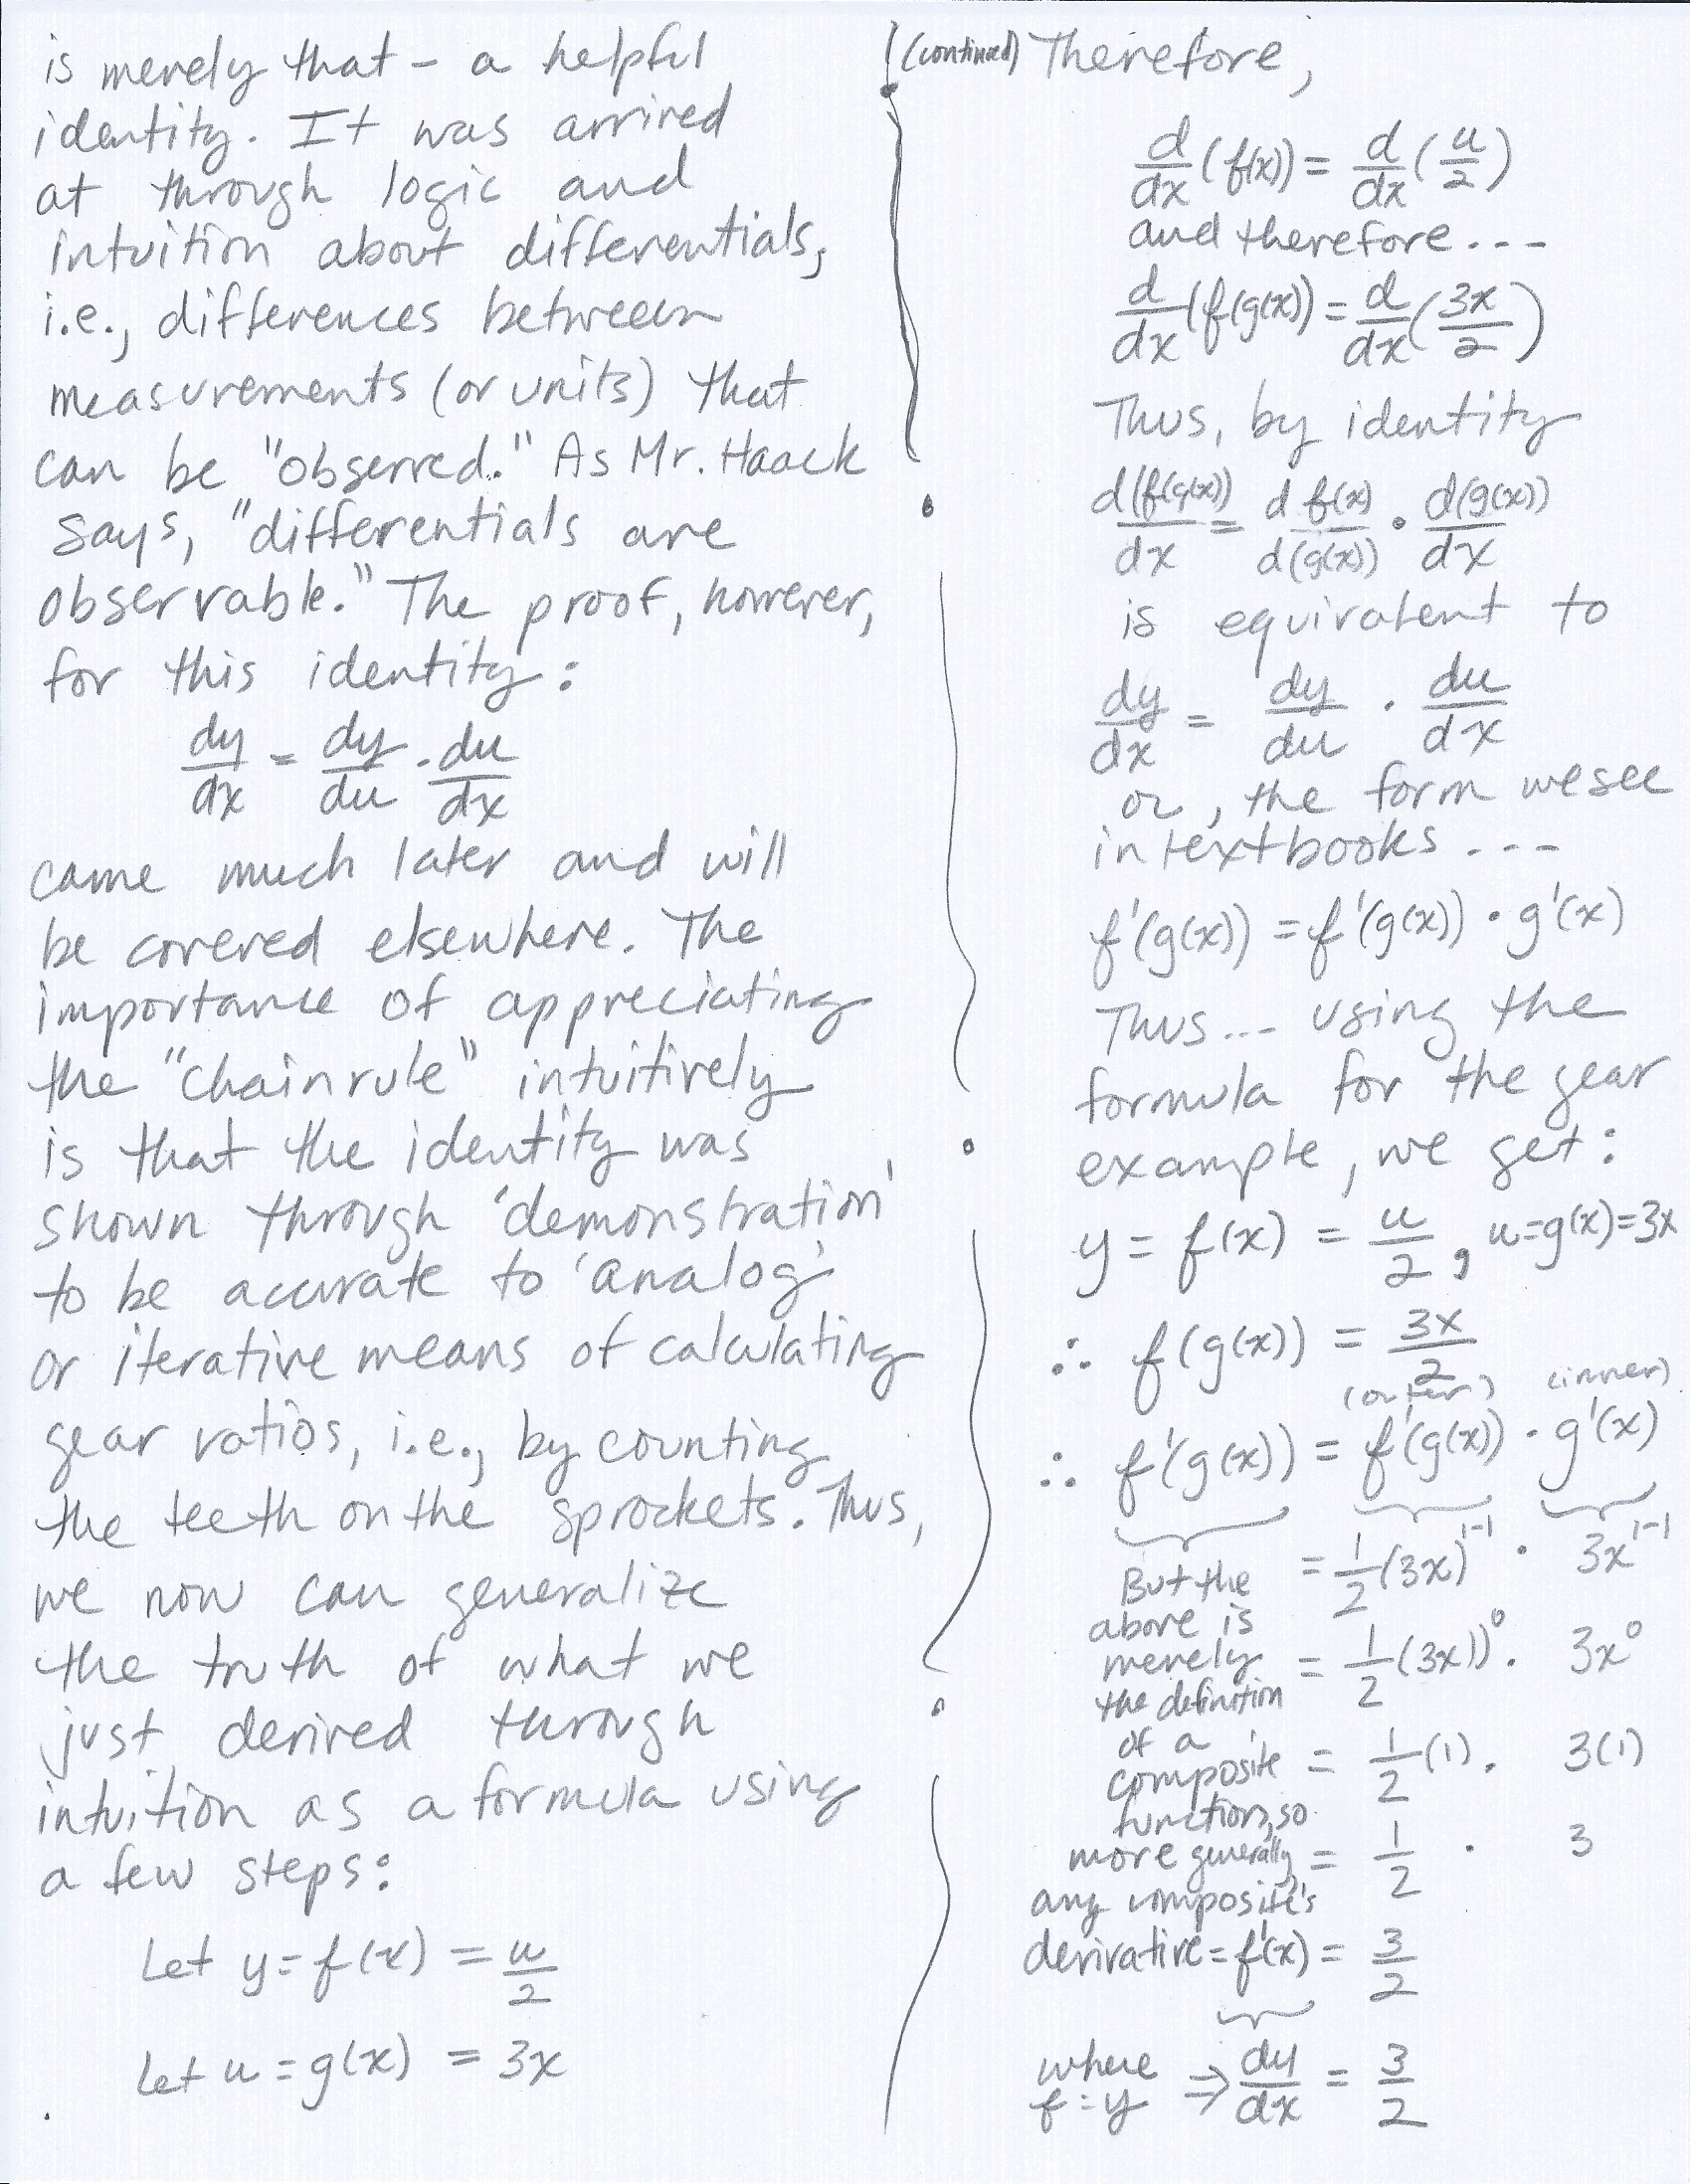 is merely that – a helpful
identity. It was arrived
at through logic and
intuition about differentials,
i.e., differences between
measurements (or units) that
can be "observed." As Mr. Haack
says, "differentials are
observable." The proof, however,
for this identity:
dy/dx = dy/du · du/dx
came much later and will
be covered elsewhere. The
importance of appreciating
the "chain rule" intuitively
is that the identity was
shown through 'demonstration'
to be accurate to 'analog'
or iterative means of calculating
gear ratios, i.e., by counting
the teeth on the sprockets. Thus,
we now can generalize
the truth of what we
just derived through
intuition as a formula using
a few steps:
Let y = f(x) = u/2
Let u = g(x) = 3x
(continued) Therefore,
d/dx (f(x)) = d/dx (u/2)
and therefore...
d/dx (f(g(x)) = d/dx (3x/2)
Thus, by identity
d(f(g(x))/dx = d f(x)/d(g(x)) · d(g(x))/dx
is equivalent to
dy/dx = dy/du · du/dx
or, the form we see
in textbooks ...
f'(g(x)) = f'(g(x)) · g'(x)
Thus... using the
formula for the gear
example, we get:
y = f(x) = u/2, u=g(x)=3x
∴ f(g(x)) = 3x/2
(outer) (inner)
∴ f'(g(x)) = f'(g(x)) · g'(x)
But the = 1/2 (3x)^1-1 · 3x^1-1
above is
merely = 1/2 (3x))^0 · 3x^0
the definition
of a
composite = 1/2 (1) · 3(1)
function, so
more generally = 1/2 · 3
any composite's
derivative = f'(x) = 3/2
where
f = y ⇒ dy/dx = 3/2